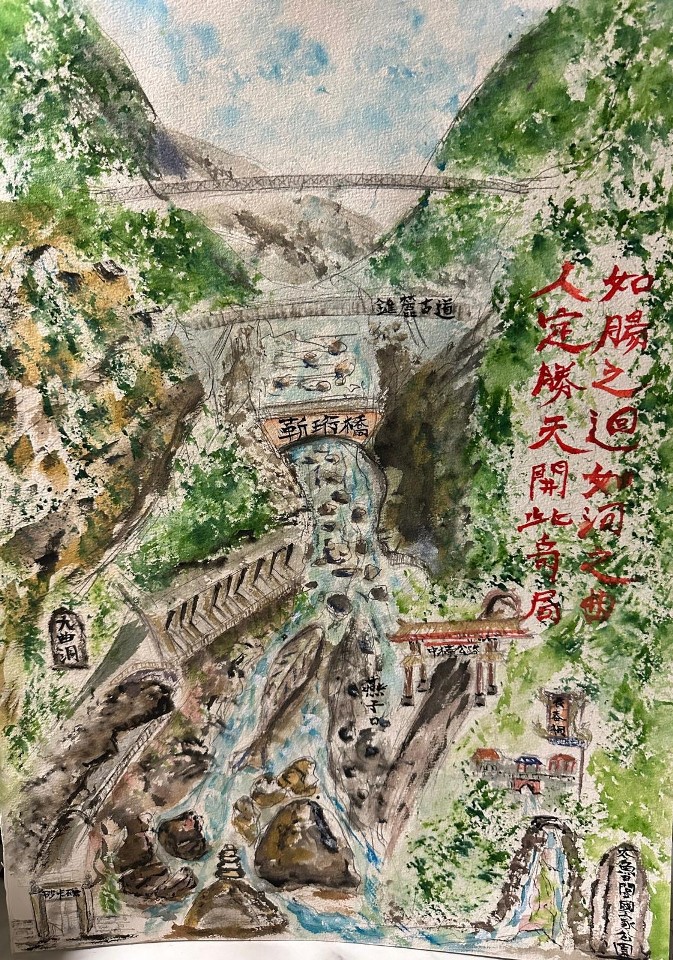 如腸之迴如河之曲
人定勝天開此奇局
錐麓古道
靳珩橋
九曲洞
燕子口
中橫公路
長春祠
砂卡礑
太魯閣國家公園